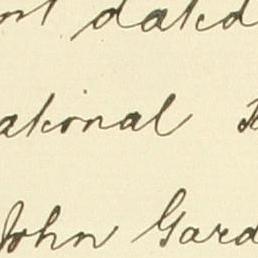 dated
ational
John Gard